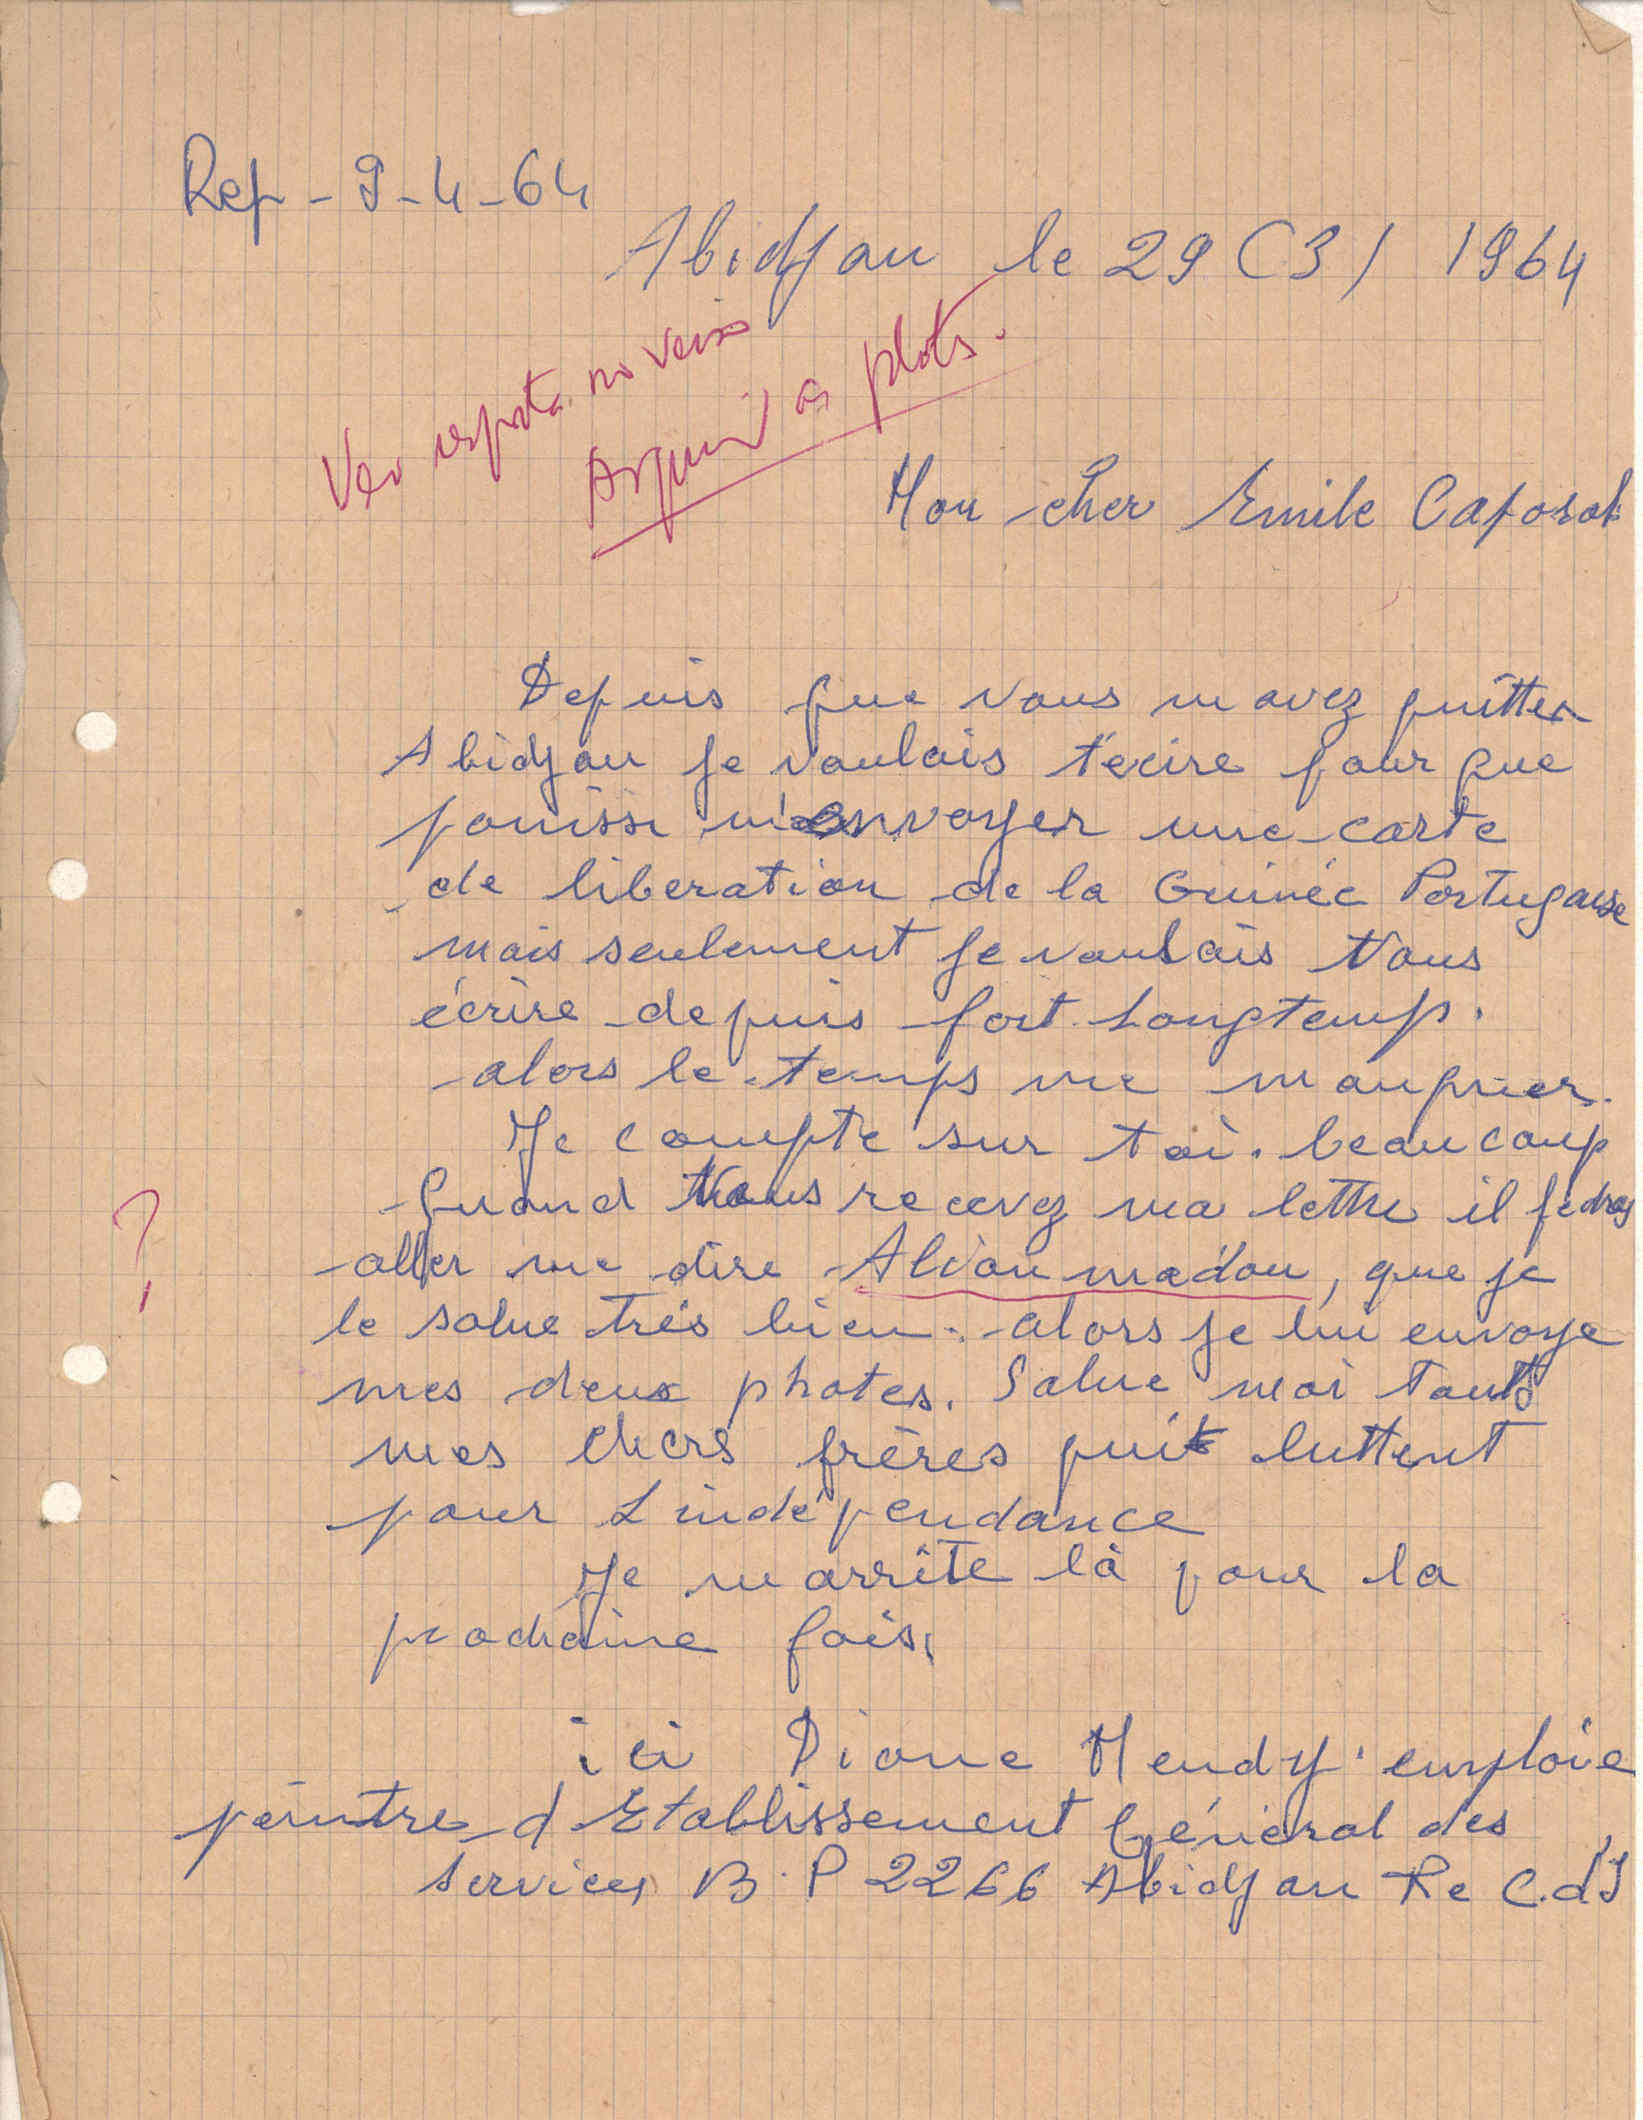 Rep - 9-4-64
Abidjan le 29 (3) 1964
Ver resposta no verso
Arquivar as photos.
Mon cher Emile Caposot
Depuis que vous m avez quitter
Abidjan je voulais t'ecire pour que
pouissi m'envoyer une carte
de liberation de la Guinée Portugaise
mais seulement je voulais Vous
écrire depuis fort Longtemp.
alors le temps me manquer.
Je compte sur toi. beaucoup
Quand Vous recevez ma lettre il
aller me dire Aliou madou, que je
le salue très bien. alors je lui envoye
mes deux photes. Salue moi touts
mes chers frères quit luttent
pour L indépendance
Je m arrite là pour la
prochaine fois,
ici Dione Mendy employe
peintre d Etablissement Général des
services B.P 2266 Abidjan Re C.d'I
?